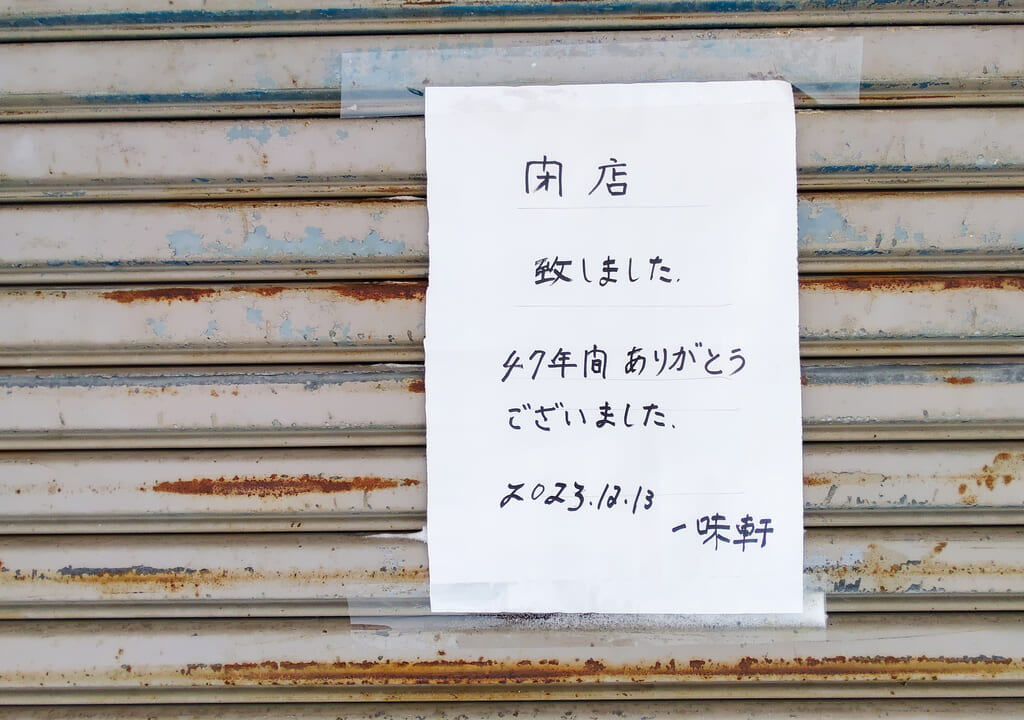 閉店
致しました.
47年間 ありがとう
ございました.
2023.12.13
一味軒